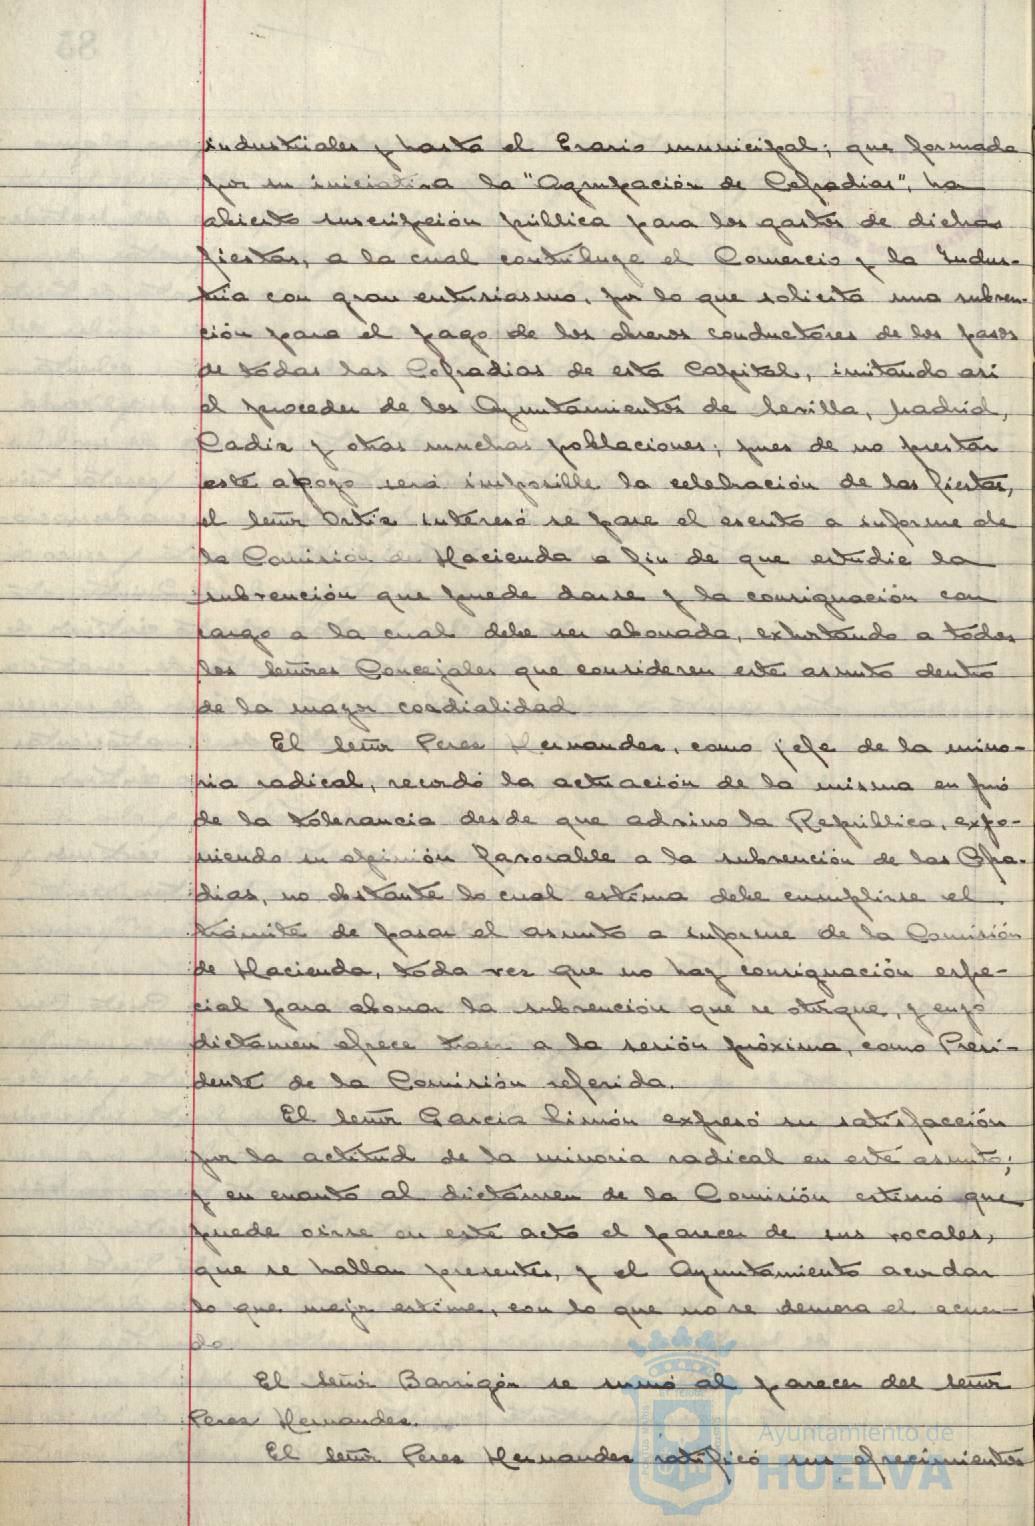 industriales y hasta el Erario municipal; que formada
por su iniciativa la "Agrupación de Cofradias", ha
abierto suscripción pública para los gastos de dichas
fiestas, a la cual contribuye el Comercio y la Indus-
tria con gran entusiasmo, por lo que solicita una subven-
ción para el pago de los obreros conductores de los pasos
de todas las Cofradias de esta Capital, imitando asi
el proceder de los Ayuntamientos de Sevilla, Madrid,
Cadiz y otras muchas poblaciones; pues de no prestar
este apoyo será imposible la celebración de las fiestas,
el señor Ortiz interesó se pase el escrito a informe de
la Comisión de Hacienda a fin de que estudie la
subvención que puede darse y la consignación con
cargo a la cual debe ser abonada, exhortando a todos
los señores Concejales que consideren este asunto dentro
de la mayor cordialidad
El señor Perez Hernandez, como jefe de la mino-
ria radical, recordó la actuación de la misma en pró
de la tolerancia desde que advino la República, expo-
niendo su opinión favorable a la subvención de las Cofra-
dias, no obstante lo cual estima debe cumplirse el
trámite de pasar el asunto a informe de la Comisión
de Hacienda, toda vez que no hay consignación espe-
cial para abonar la subvención que se otorgue, y cuyo
dictamen ofrece traer a la sesión próxima, como Presi-
dente de la Comisión referida.
El señor Garcia Limón expresó su satisfacción
por la actitud de la minoria radical en este asunto;
y en cuanto al dictamen de la Comisión estimó que
puede oirse en este acto el parecer de sus vocales,
que se hallan presentes, y el Ayuntamiento acordar
lo que mejor estime, con lo que no se demora el acuer-
do.
El señor Barrigón se sumó al parecer del señor
Perez Hernandez.
El señor Perez Hernandez ratificó sus ofrecimientos
Ayuntamiento de
HUELVA